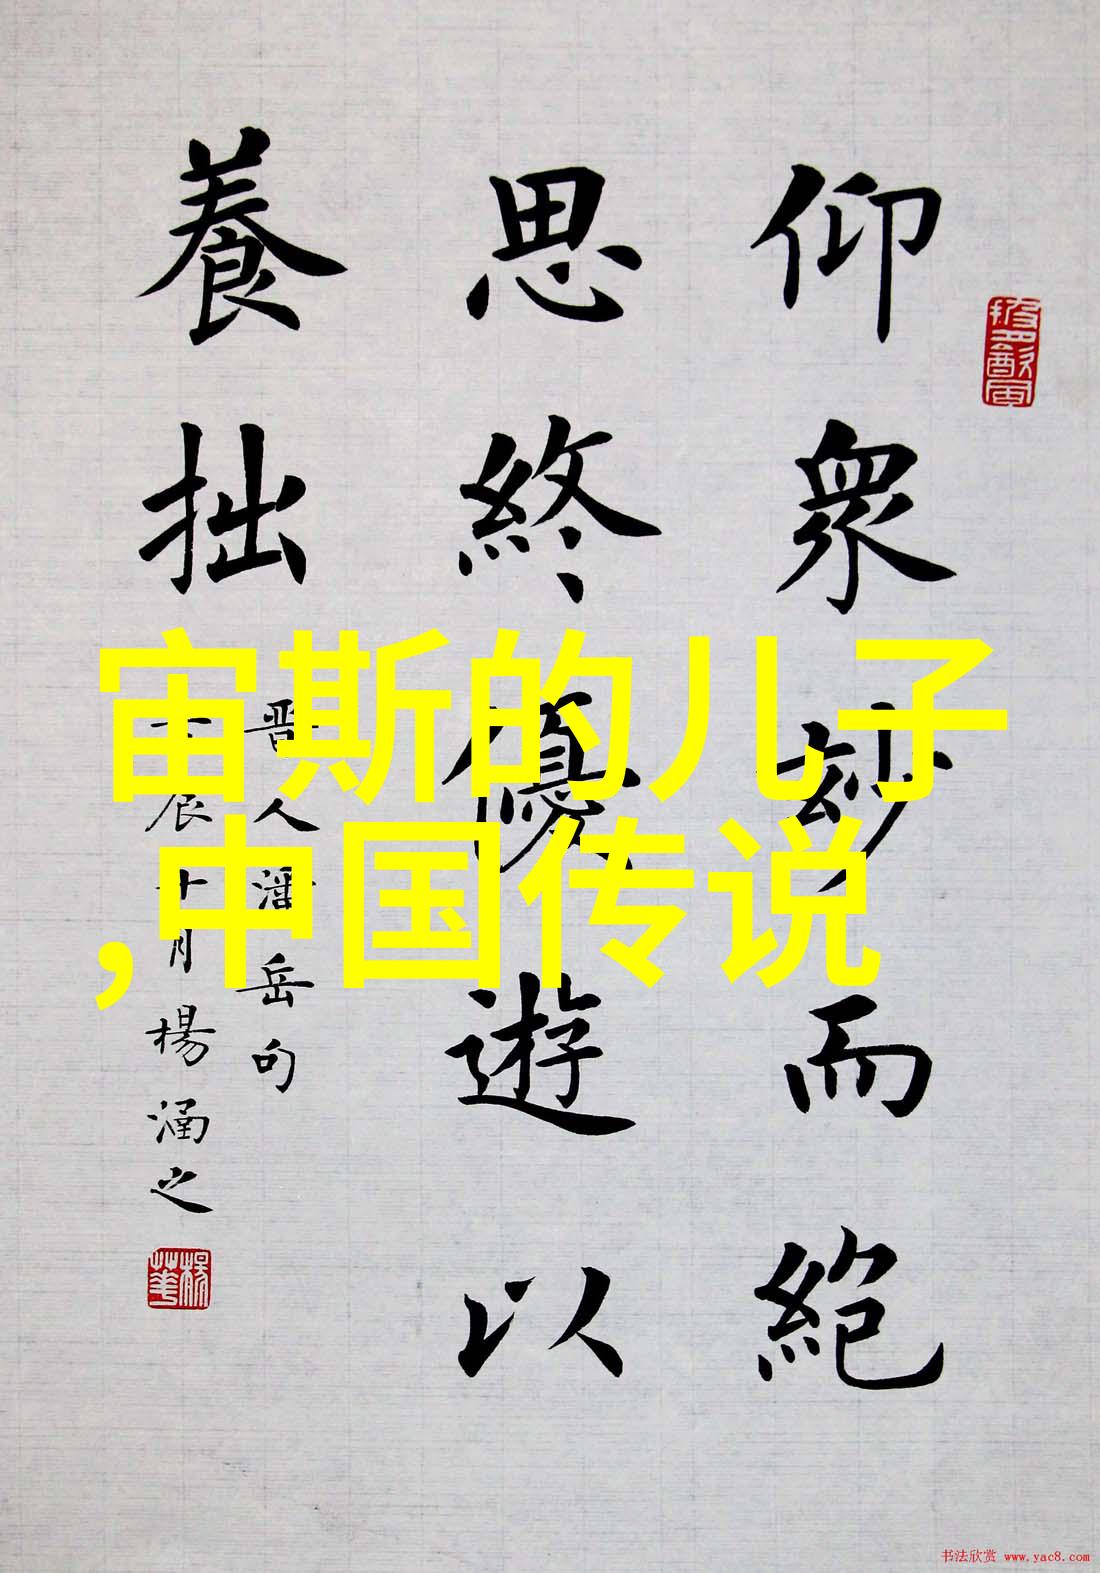 仰衆妙而絶
思終優遊以
養拙
晋人潘岳句
辰十月楊涵之
宙斯的儿子
,中国传说
书法欣赏 www.yac8.com